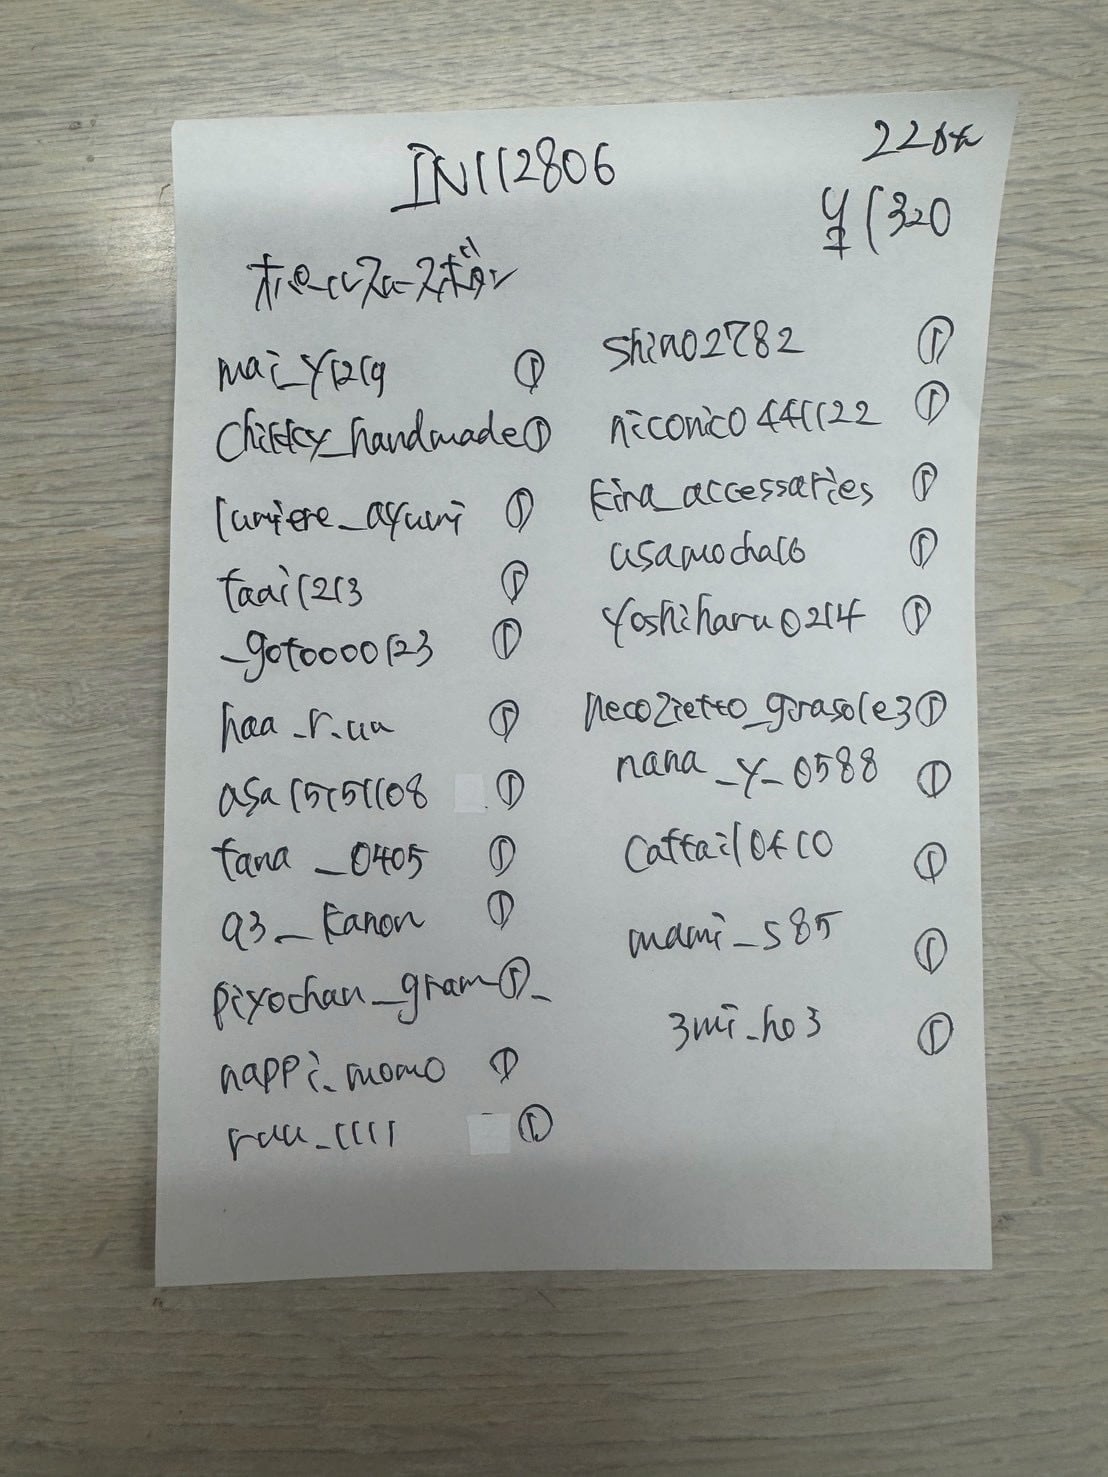 IN112806
22点
¥1320
mai_y1219 ①
chikky_handmade ①
lumiere_ayumi ①
taai1213 ①
_goto0000123 ①
haa_r.uu ①
asa15151108 ①
tana_0405 ①
a3_kanon ①
piyochan_gram ①_
nappi_momo ①
ruu_1111 ①
shino2782 ①
niconico441122 ①
kira_accessaries ①
asamocha16 ①
yoshiharu0214 ①
necozietto_girasole3 ①
nana_y_0588 ①
cattail0410 ①
mami_s85 ①
3mi_ho3 ①